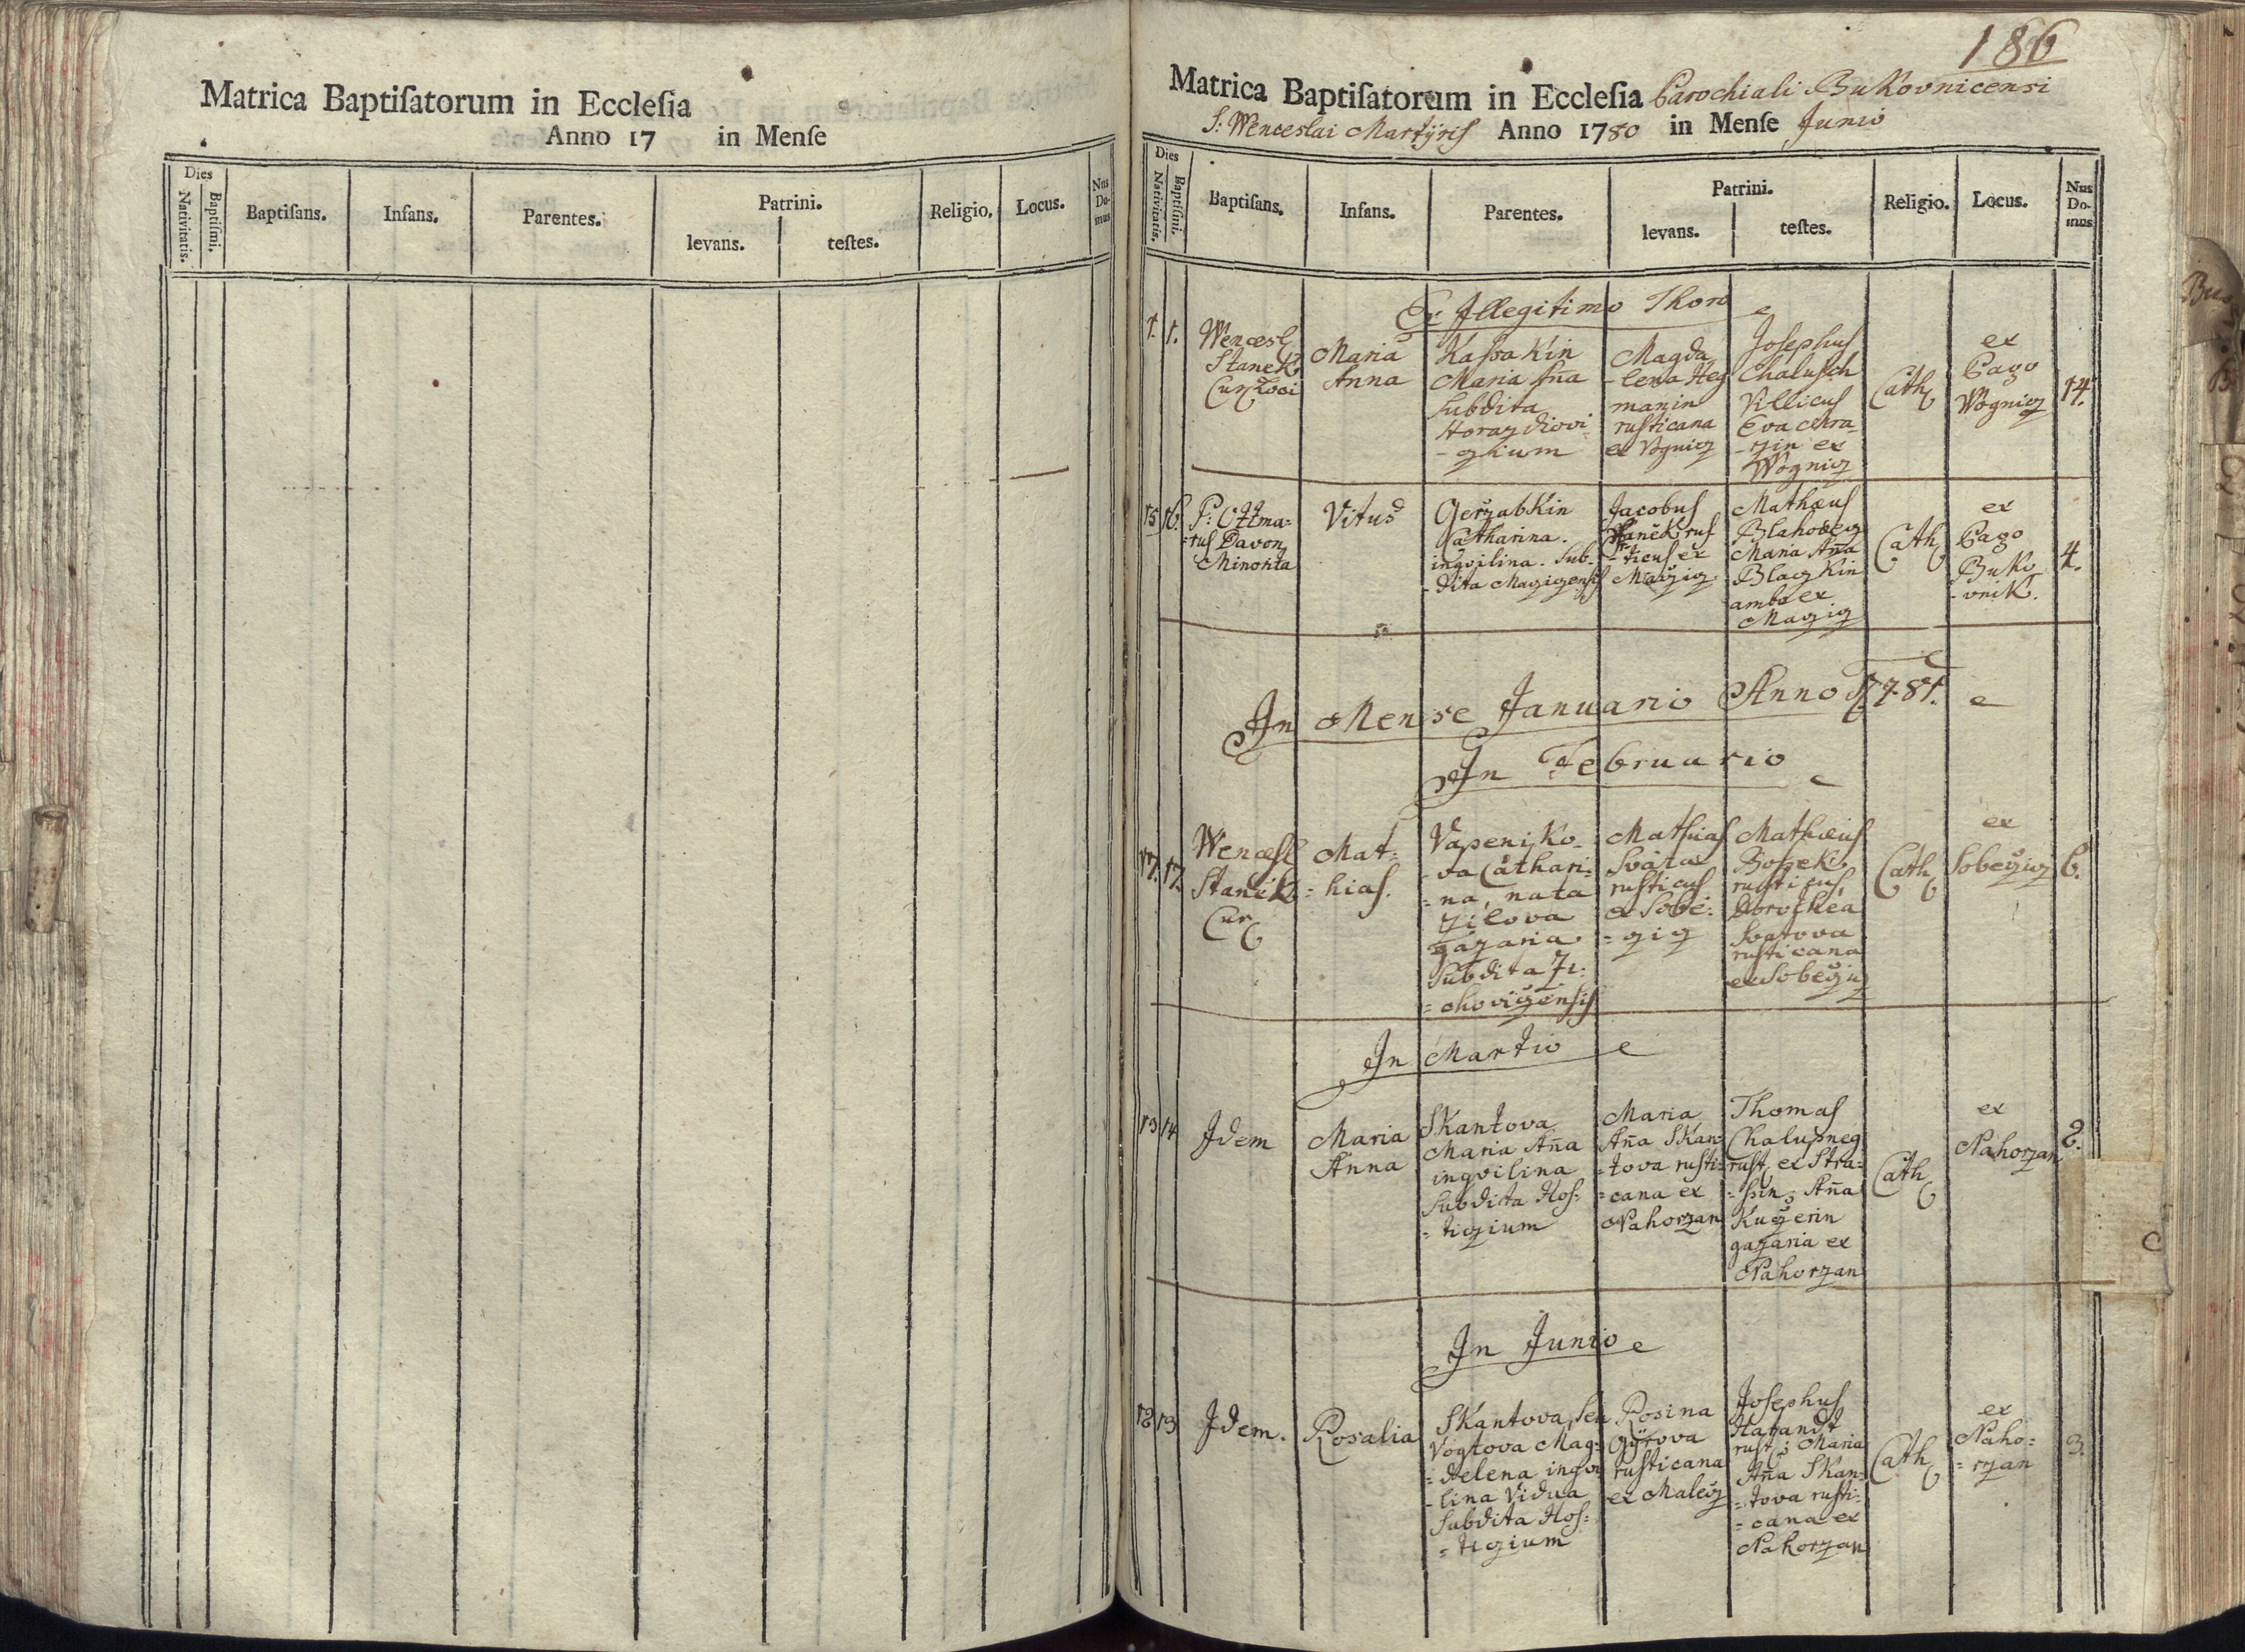 Matrica Baptisatorum in Ecclesia
Anno 17 in Mense
Dies
Nativitatis.
Baptismi.
Baptisans.
Infans.
Parentes.
Patrini.
levans.
testes.
Religio.
Locus.
Nus
Do-
mus
186
Matrica Baptisatorum in Ecclesia Parochiali Bukovnicensi
S: Wenceslai Martÿris Anno 1780 in Mense Junio
Dies
Nativitatis.
Baptismi.
Baptisans.
Infans.
Parentes.
Patrini.
levans.
testes.
Religio.
Locus.
Nus
Do-
mus
Ex Illegitimo Thoro
1. 1.
Wencesl
Stanek
Cur Loci
Maria
Anna
Kassakin
Maria Aña
subdita
Horazdiovi-
-zium
Magda
-lena Heg
manin
rusticana
ex Wognicz
Josephus
Chalusch
Villicus
Eva
-zin ex
Wognicz
Cath
ex
Pago
Wognicz
14.
15 16.
P: Ottma=
=rus Davon
Minorita
Vitus
Gerzabkin
Catharina.
inqvilina. Sub-
-dita Maczicensis
Jacobus
Stanek rus
-ticus ex
Maczicz
Mathæus
Maria Aña
Blaczkin
ambo ex
Maczicz
Cath
ex
Pago
Buko
-vnik.
4.
In Mense Januario Anno 1781.
In Februario
17. 17.
Wencesl
Stanek
Cur
Mat=
=hias.
Vapeniko-
-va Cathari=
=na, nata
Zilova
gazaria
Subdita Zi:
=chovicensis
Mathias
Sváta
rusticus
ex Sobě:
=zicz
Mathæus
rusticus,
Dorothea
Svatova
rusticana
ex Soběczicz
Cath
ex
Soběczicz
6.
In Martio
13 14
Idem
Maria
Anna
Skantova
Maria Aña
inqvilina
Subdita Hos:
=ticzium
Maria
Aña Skan
=tova rusti=
=cana ex
Nahorzan
Thomas
Chalupneg
rust, ex Stra=
=ssin; Aña
Kuczerin
gazaria ex
Nahorzan
Cath
ex
Nahorzan
2.
In Junio
12 13
Idem.
Rosalia
Skantova, seu
Vogtova Mag=
=delena inqvi
-lina Vidua
Subdita Hos:
=ticzium
Rosina
Gÿrova
rusticana
ex Malecz
Josephus
Harandt
rust; Maria
Aña Skan=
=tova rusti=
=cana ex
Nahorzan
Cath
ex
Naho=
=rzan
3.